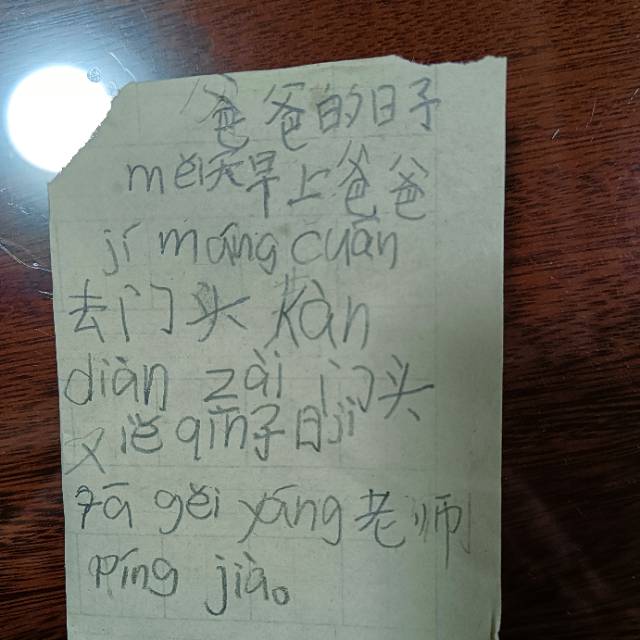 爸爸的日子
měi天早上爸爸
jí máng cuān
去门头 kàn
diàn zài 门头
又 qīn子日jì
fā gěi yáng老师
píng jià。